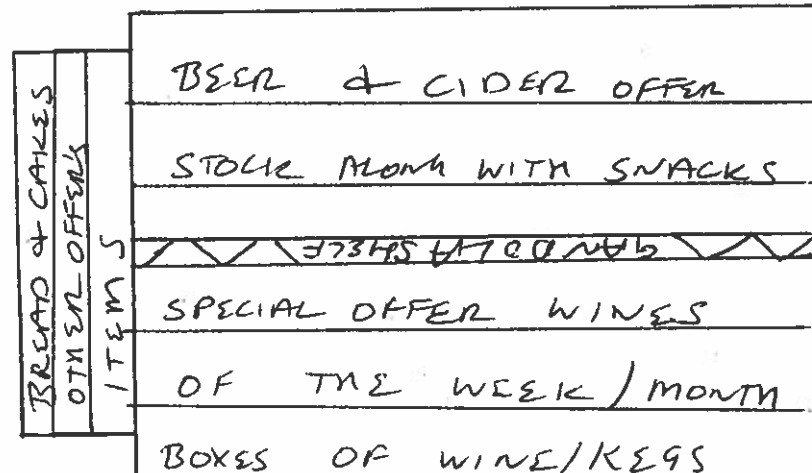 BREAD & CAKES
OTHER OFFER'S
ITEMS
BEER & CIDER OFFER
STOCK ALONG WITH SNACKS
GANDOLLA SHELF
SPECIAL OFFER WINES
OF THE WEEK/MONTH
BOXES OF WINE/KEGS